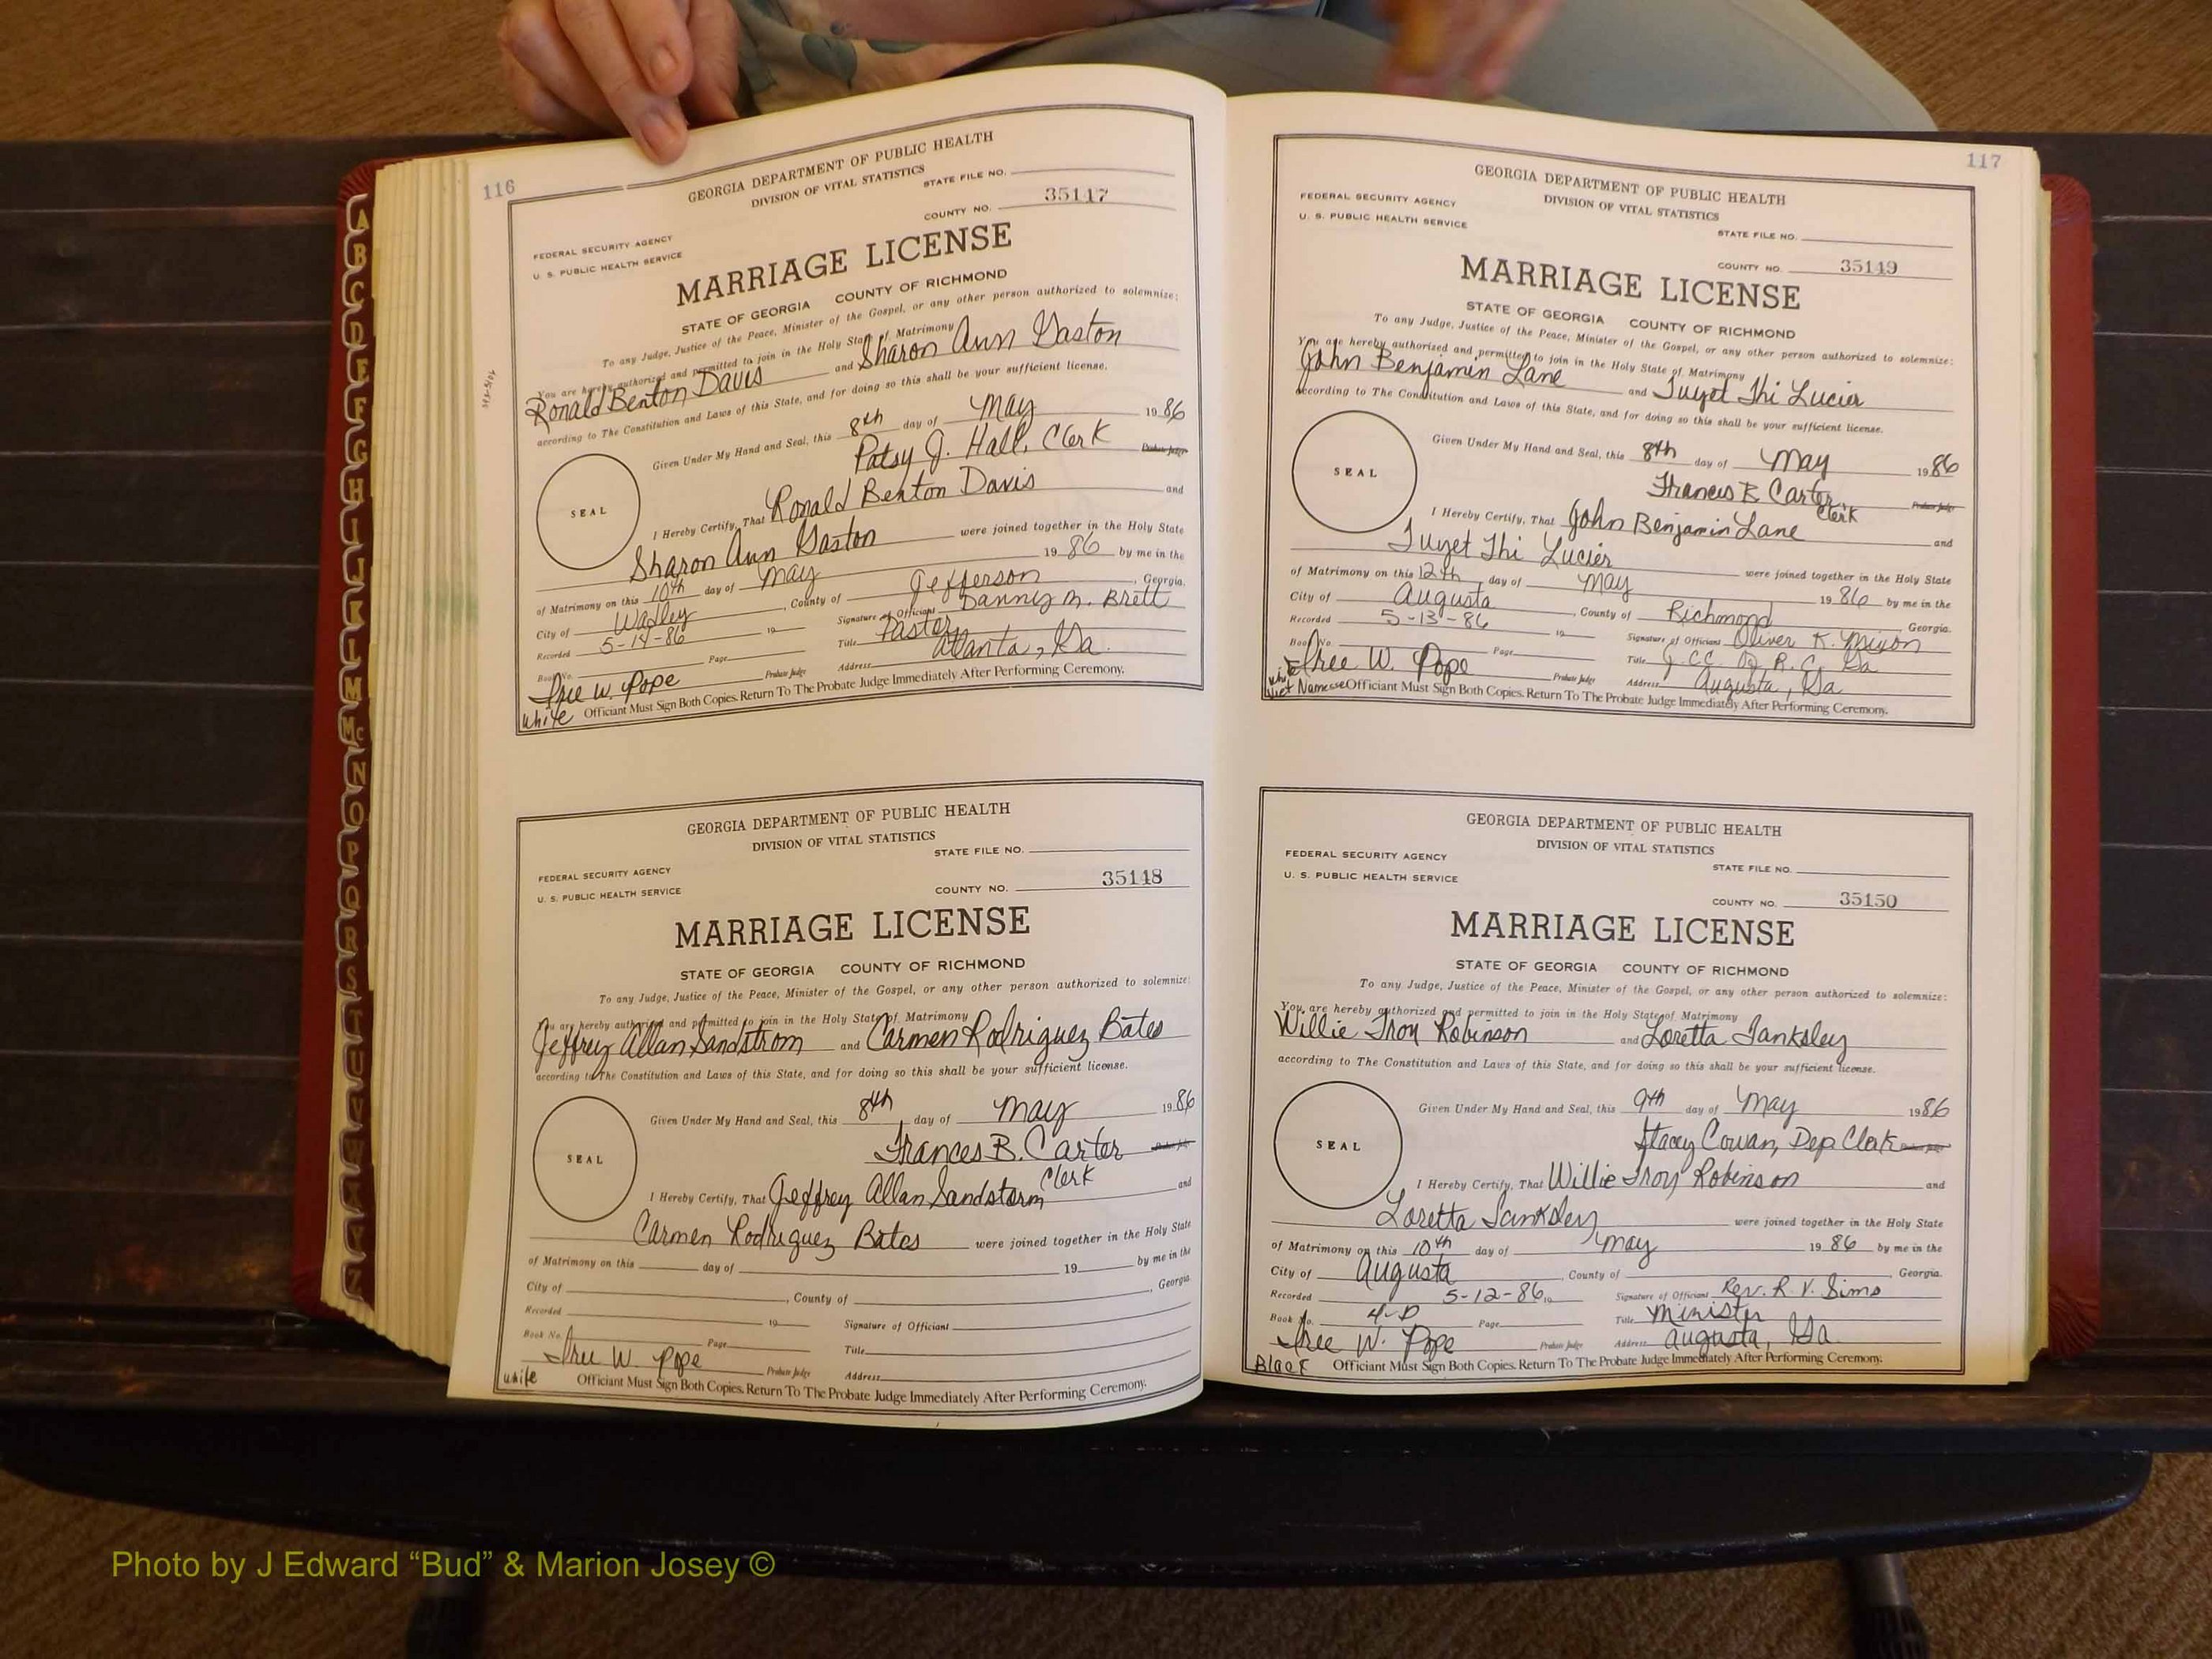 A
B
C
D
E
F
G
H
I
J
K
L
M
Mc
N
O
P
Q
R
S
T
U
V
W
X
Y
Z
116
GEORGIA DEPARTMENT OF PUBLIC HEALTH
DIVISION OF VITAL STATISTICS
STATE FILE NO.
COUNTY NO. 35117
FEDERAL SECURITY AGENCY
U. S. PUBLIC HEALTH SERVICE
MARRIAGE LICENSE
STATE OF GEORGIA COUNTY OF RICHMOND
To any Judge, Justice of the Peace, Minister of the Gospel, or any other person authorized to solemnize:
You are hereby authorized and permitted to join in the Holy State of Matrimony
Ronald Benton Davis and Sharon Ann Gaston
according to The Constitution and Laws of this State, and for doing so this shall be your sufficient license.
Given Under My Hand and Seal, this 8th day of May 1986
Patsy J. Hall, Clerk Probate Judge
SEAL
I Hereby Certify, That Ronald Benton Davis and
Sharon Ann Gaston were joined together in the Holy State
of Matrimony on this 10th day of May 1986 by me in the
City of Wadley, County of Jefferson, Georgia.
Recorded 5-14-86 19 Signature of Officiant Danny M. Brett
Book No. Page Title Pastor
Free W. Pope Probate Judge Address Atlanta, Ga.
White Officiant Must Sign Both Copies. Return To The Probate Judge Immediately After Performing Ceremony.
GEORGIA DEPARTMENT OF PUBLIC HEALTH
DIVISION OF VITAL STATISTICS
STATE FILE NO.
FEDERAL SECURITY AGENCY
U. S. PUBLIC HEALTH SERVICE
COUNTY NO. 35148
MARRIAGE LICENSE
STATE OF GEORGIA COUNTY OF RICHMOND
To any Judge, Justice of the Peace, Minister of the Gospel, or any other person authorized to solemnize:
You are hereby authorized and permitted to join in the Holy State of Matrimony
Jeffrey Allan Sandstrom and Carmen Rodriguez Bates
according to The Constitution and Laws of this State, and for doing so this shall be your sufficient license.
Given Under My Hand and Seal, this 8th day of May 1986
Frances B. Carter Probate Judge
Clerk
SEAL
I Hereby Certify, That Jeffrey Allan Sandstorm and
Carmen Rodriguez Bates were joined together in the Holy State
of Matrimony on this day of 19 by me in the
City of , County of , Georgia.
Recorded 19 Signature of Officiant
Book No. Page Title
Free W. Pope Probate Judge Address
white Officiant Must Sign Both Copies. Return To The Probate Judge Immediately After Performing Ceremony.
117
GEORGIA DEPARTMENT OF PUBLIC HEALTH
DIVISION OF VITAL STATISTICS
FEDERAL SECURITY AGENCY
U. S. PUBLIC HEALTH SERVICE
STATE FILE NO.
COUNTY NO. 35149
MARRIAGE LICENSE
STATE OF GEORGIA COUNTY OF RICHMOND
To any Judge, Justice of the Peace, Minister of the Gospel, or any other person authorized to solemnize:
You are hereby authorized and permitted to join in the Holy State of Matrimony
John Benjamin Lane and Tuyet Thi Lucier
according to The Constitution and Laws of this State, and for doing so this shall be your sufficient license.
Given Under My Hand and Seal, this 8th day of May 1986
Frances B. Carter, Probate Judge
Clerk
SEAL
I Hereby Certify, That John Benjamin Lane and
Tuyet Thi Lucier were joined together in the Holy State
of Matrimony on this 12th day of May 1986 by me in the
City of Augusta, County of Richmond, Georgia.
Recorded 5-13-86 19 Signature of Officiant Oliver K. Mixon
Book No. Page Title J. C.C. of R. C. Ga
Free W. Pope Probate Judge Address Augusta, Ga
White
Viet Namesse Officiant Must Sign Both Copies. Return To The Probate Judge Immediately After Performing Ceremony.
GEORGIA DEPARTMENT OF PUBLIC HEALTH
DIVISION OF VITAL STATISTICS
FEDERAL SECURITY AGENCY
U. S. PUBLIC HEALTH SERVICE
STATE FILE NO.
COUNTY NO. 35150
MARRIAGE LICENSE
STATE OF GEORGIA COUNTY OF RICHMOND
To any Judge, Justice of the Peace, Minister of the Gospel, or any other person authorized to solemnize:
You are hereby authorized and permitted to join in the Holy State of Matrimony
Willie Troy Robinson and Loretta Tanksley
according to The Constitution and Laws of this State, and for doing so this shall be your sufficient license.
Given Under My Hand and Seal, this 9th day of May 1986
Stacey Cowan, Dep Clerk Probate Judge
SEAL
I Hereby Certify, That Willie Troy Robinson and
Loretta Tanksley were joined together in the Holy State
of Matrimony on this 10th day of May 1986 by me in the
City of Augusta, County of , Georgia.
Recorded 5-12-86 19 Signature of Officiant Rev. R. V. Sims
Book No. 4-D Page Title Minister
Free W. Pope Probate Judge Address Augusta, Ga.
Black Officiant Must Sign Both Copies. Return To The Probate Judge Immediately After Performing Ceremony.
Photo by J Edward “Bud” & Marion Josey ©